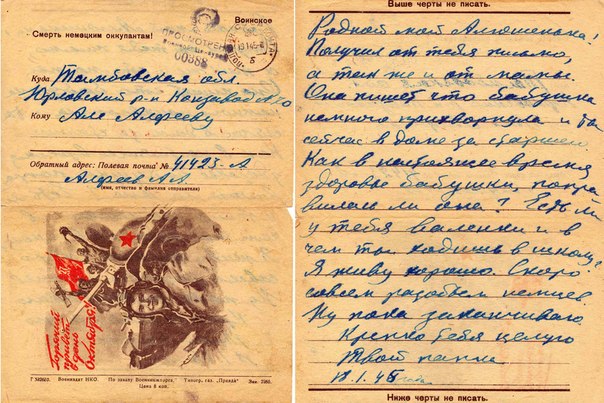 Воинское
Смерть немецким оккупантам!
ПРОСМОТРЕНО
00388
Куда Тамбовская обл.
Юрловский р-н Конзавод №
Кому Але Алфееву
Обратный адрес: Полевая почта № 41423-А
Алфеев А А
(имя, отчество и фамилия отправителя)
Горячий
привет
в день
Октября!
Воениздат НКО. По заказу Военкниготорга. Типогр. газ. „Правда“ Зак.
Цена 8 коп.
Выше черты не писать.
Родной мой Алюшенька!
Получил от тебя письмо,
а так же и от мамы.
Она пишет что бабушка
немного прихворнула и ты
сейчас в доме за старшего.
Как в настоящее время
здоровье бабушки, попра
вилась ли она? Есть ли
у тебя валенки и в
чем ты ходишь в школу?
Я живу хорошо. Скоро
совсем разобьем немцев.
Ну пока заканчиваю.
Крепко тебя целую
Твой папка
1.45 года
Ниже черты не писать.